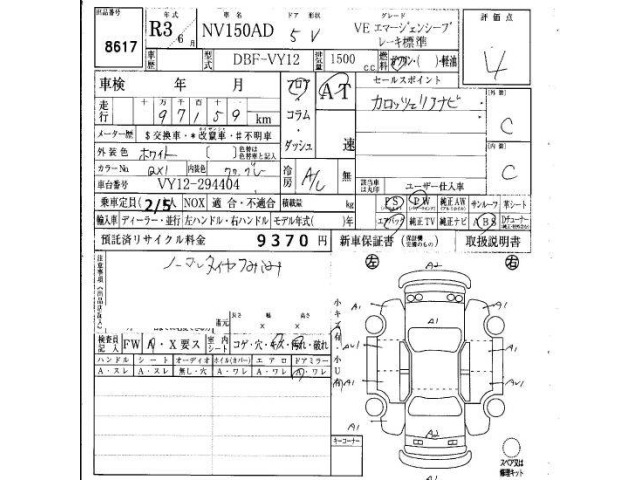 出品番号 8617
年式 R3 6月
車名 NV150AD
ドア 形状 5 V
グレード VE エマージェンシーブレーキ標準
評価点 4
車歴
型式 DBF-VY12
排気量 1500 c.c.
燃料 ガソリン・軽油
車検 年 月
フロア・コラム・ダッシュ
AT 速
セールスポイント
カロッツェリアナビ
外装 C
内装 C
走行 十万 万 千 百 十 97159 km
メーター歴 $交換車・*改竄車・#不明車
外装色 ホワイト 〔 〕 色替は色替車と記入
カラーNo QX1 内装色
冷房 A/C 無
車台番号 VY12-294404
該当車は丸印
ユーザー仕入車
乗車定員 2/5人 NOX 適合・不適合 積載量 kg
PS PW 純正AW サンルーフ 革シート
輸入車 ディーラー・並行 左ハンドル・右ハンドル モデル年式( )年
エアバッグ 純正TV 純正ナビ ABS
預託済リサイクル料金 9370円
新車保証書 取扱説明書
注意事項(出品店記入)
左 右
長さ 幅 高さ
× ×
検査員記入 FW A・X要ス 室内シート コゲ・穴・キズ・汚れ・破れ
ハンドル シート オーディオ ホイル(カバー) エアロ ドアミラー
A・スレ A・スレ 無し・穴 A・ワレ A・ワレ A・ワレ
小キズ有 小U有
キーコーナー
A2
A1 A1 A1
A1
A1 A1
A1 A1
A2
A1
スペア又は修理キット